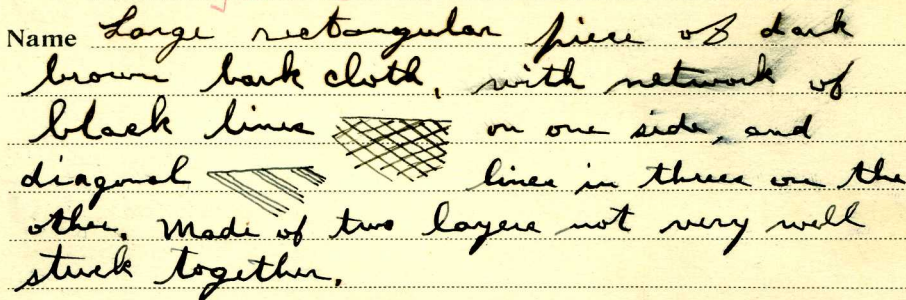 Name Large rectangular piece of dark
brown bark cloth, with network of
black lines on one side, and
diagonal lines in threes on the
other. Made of two layers not very well
stuck together.